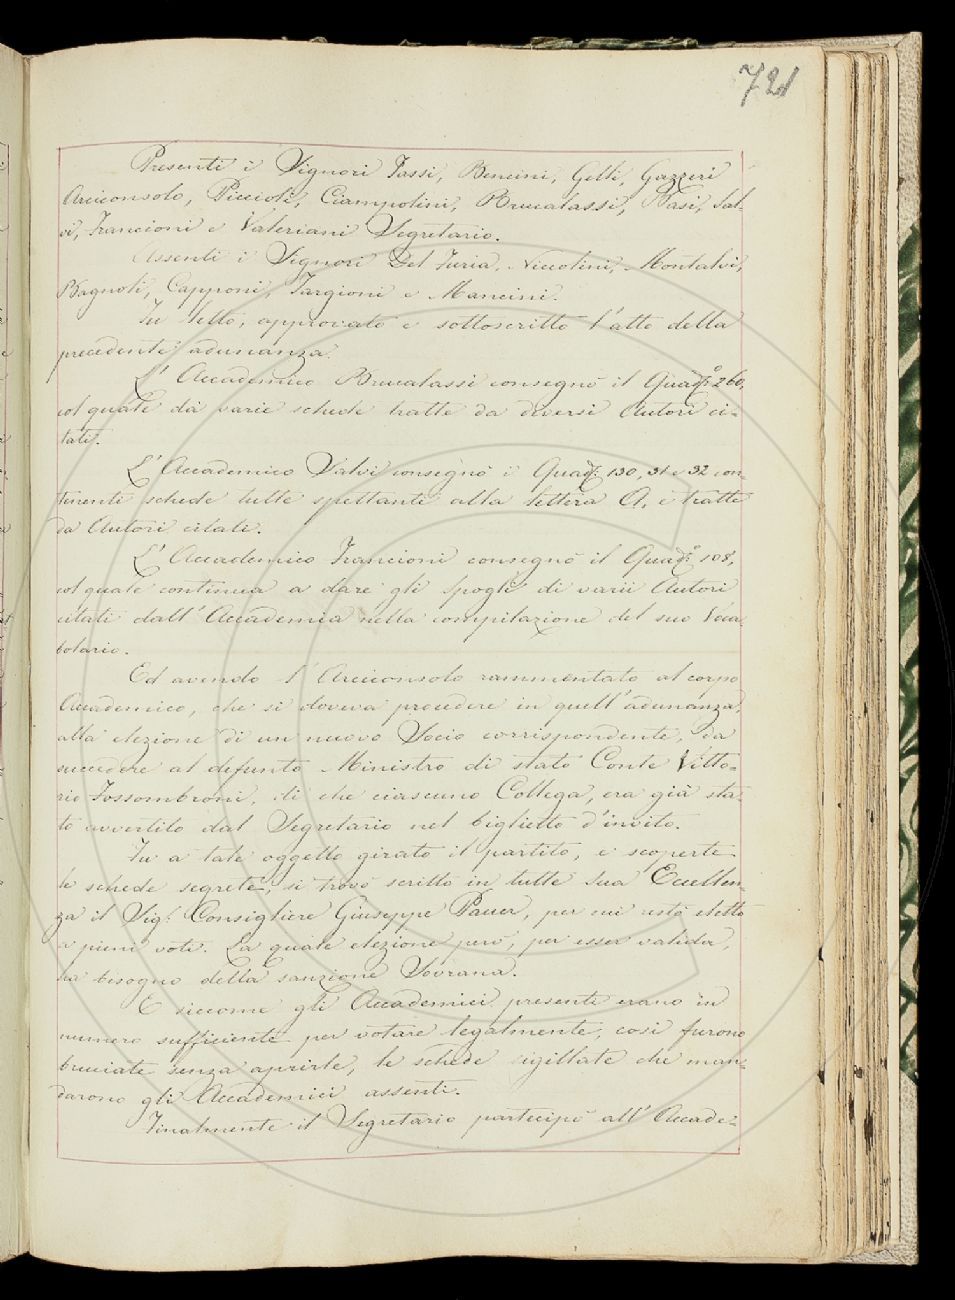 721
Presenti i Signori Tassi, Bencini, Gelli, Gazzeri
Arciconsolo, Piccioli, Ciampolini, Brucalassi, Basi, Sal-
vi, Francioni e Valeriani Segretario.
Assenti i Signori Del Furia, Niccolini, Montalvi,
Bagnoli, Capponi, Targioni e Mancini.
Fu letto, approvato e sottoscritto l'atto della
precedente adunanza.
L'Accademico Brucalassi consegnò il Quad.º 260,
col quale dà varie schede tratte da diversi Autori ci-
tati.
L'Accademico Salvi consegnò i Quad. 130, 31 e 32 con-
tenenti schede tutte spettanti alla lettera A, e tratte
da Autori citati.
L'Accademico Francioni consegnò il Quad.º 108,
col quale continua a dare gli spogli di varii Autori
citati dall'Accademia nella compilazione del suo Voca
bolario.
Ed avendo l'Arciconsolo rammentato al corpo
Accademico, che si doveva procedere in quell'adunanza,
alla elezione di un nuovo Socio corrispondente, da
succedere al defunto Ministro di stato Conte Vitto-
rio Fossombroni, di che ciascuno Collega, era già sta-
to avvertito dal Segretario nel biglietto d'invito.
Fu a tale oggetto girato il partito, e scoperte
le schede segrete, si trovò scritto in tutte Sua Eccellen-
za il Sig.r Consigliere Giuseppe Pauer, per cui restò eletto
a pieni voti. La quale elezione però, per esser valida,
ha bisogno della sanzione Sovrana.
E siccome gli Accademici presenti erano in
numero sufficiente per votare legalmente, così furono
bruciate senza aprirle, le schede sigillate che man-
darono gli Accademici assenti.
Finalmente il Segretario partecipò all'Accade-